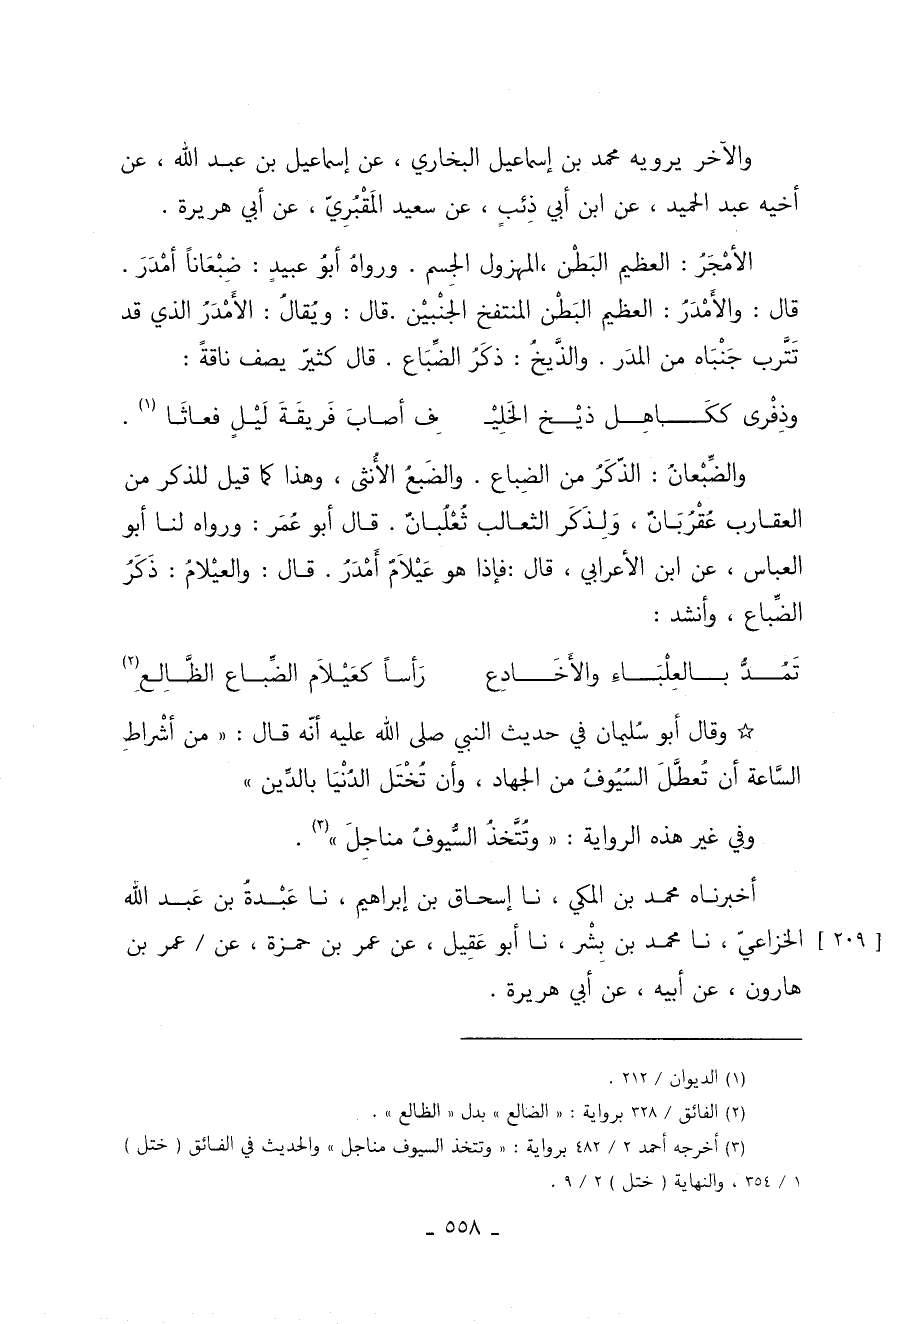 والآخر يرويه محمد بن إسماعيل البخاري ، عن إسماعيل بن عبد الله ، عن
أخيه عبد الحميد ، عن ابن أبي ذِئبٍ ، عن سعيد المَقْبُريّ ، عن أبي هريرة .
الأمْجَرُ : العظيم البَطْن ،المهزول الجسم . ورواهُ أبوُ عبيدٍ : ضِبْعَاناً أمْدَرَ .
قال : والأَمْدَرُ : العظيم البَطْن المنتفخ الجَنْبيْن .قال : ويُقالُ : الأَمْدَرُ الذي قد
تَتَّرب جَنْبَاه من المدَر . والذَّيخُ : ذكَرُ الضِّبَاع . قال كثيرّ يصف ناقةً :
وذِفْرى ككَــاهِــل ذيْــخ الخَليْــ ف أصابَ فَريقَةَ لَيْلٍ فعاثَا (١) .
والضِّبْعانُ : الذّكَرُ من الضباع . والضَبعُ الأُنثى ، وهذا كما قيل للذكر من
العقارب عُقْرُبَانٌ ، وَلِذكَر الثعالب ثُعْلُبانٌ . قال أبو عمَر : ورواه لنا أبو
العباس ، عن ابن الأعرابي ، قال :فإذا هو عَيْلاَمٌ أَمْدَرُ . قال : والعيْلامُ : ذَكَرُ
الضِّباع ، وأنشد :
تَمُــدُّ بــالعِلْبَــاء والأخَــادِع رَأساً كعَيْلاَم الضِّباع الظَّالِع(٢)
☆ وقال أبو سُليمان في حديث النبي صلى الله عليه أنّه قال : « من أشْراطِ
السَّاعة أن تُعطَّلَ السُيُوفُ من الجِهاد ، وأن تُخْتَل الدُنْيَا بالدِّين »
وفي غير هذه الرواية : « وتُتَّخذُ السُّيوفُ مناجِلَ »(٣) .
أخبرناه محمد بن المكي ، نا إسحاق بن إبراهيم ، نا عَبْدةُ بن عَبد الله
[ ٢٠٩ ] الخزاعيّ ، نا محمد بن بِشْر ، نا أبو عَقيل ، عن عمر بن حمزة ، عن / عمر بن
هارون ، عن أبيه ، عن أبي هريرة .
(١) الديوان / ٢١٢ .
(٢) الفائق / ٣٢٨ برواية : « الضالع » بدل « الظالع » .
(٣) أخرجه أحمد ٢ / ٤٨٢ برواية : « وتتخذ السيوف مناجل » والحديث في الفائق ( ختل )
١ / ٣٥٤ ، والنهاية ( ختل ) ٢ / ٩ .
ـ ٥٥٨ ـ